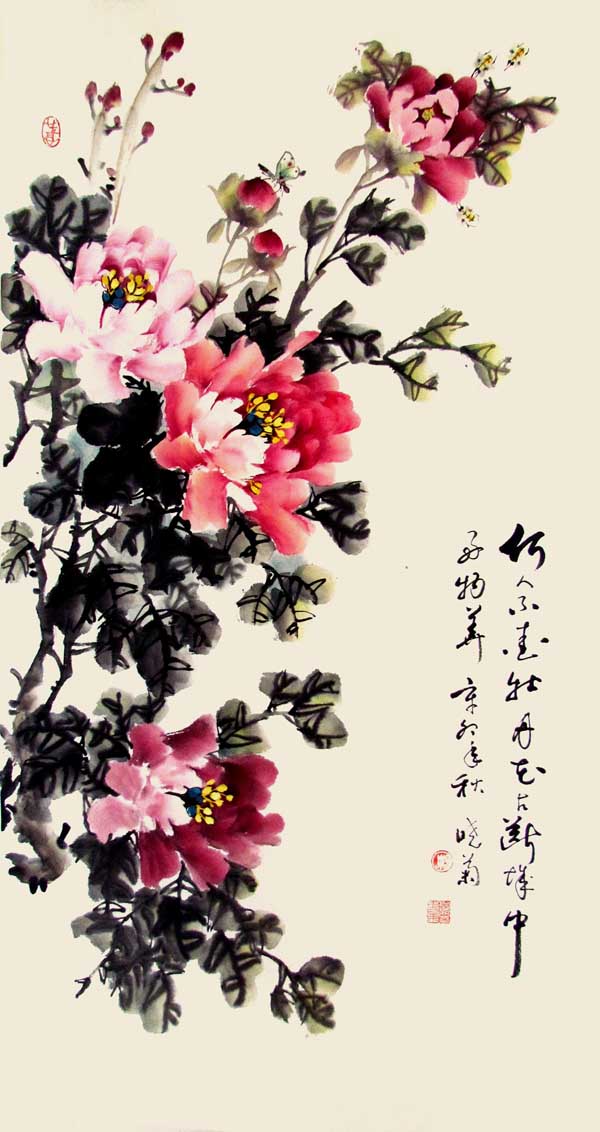 何人不愛牡丹花占断城中
好物華 辛卯年秋 晓菊